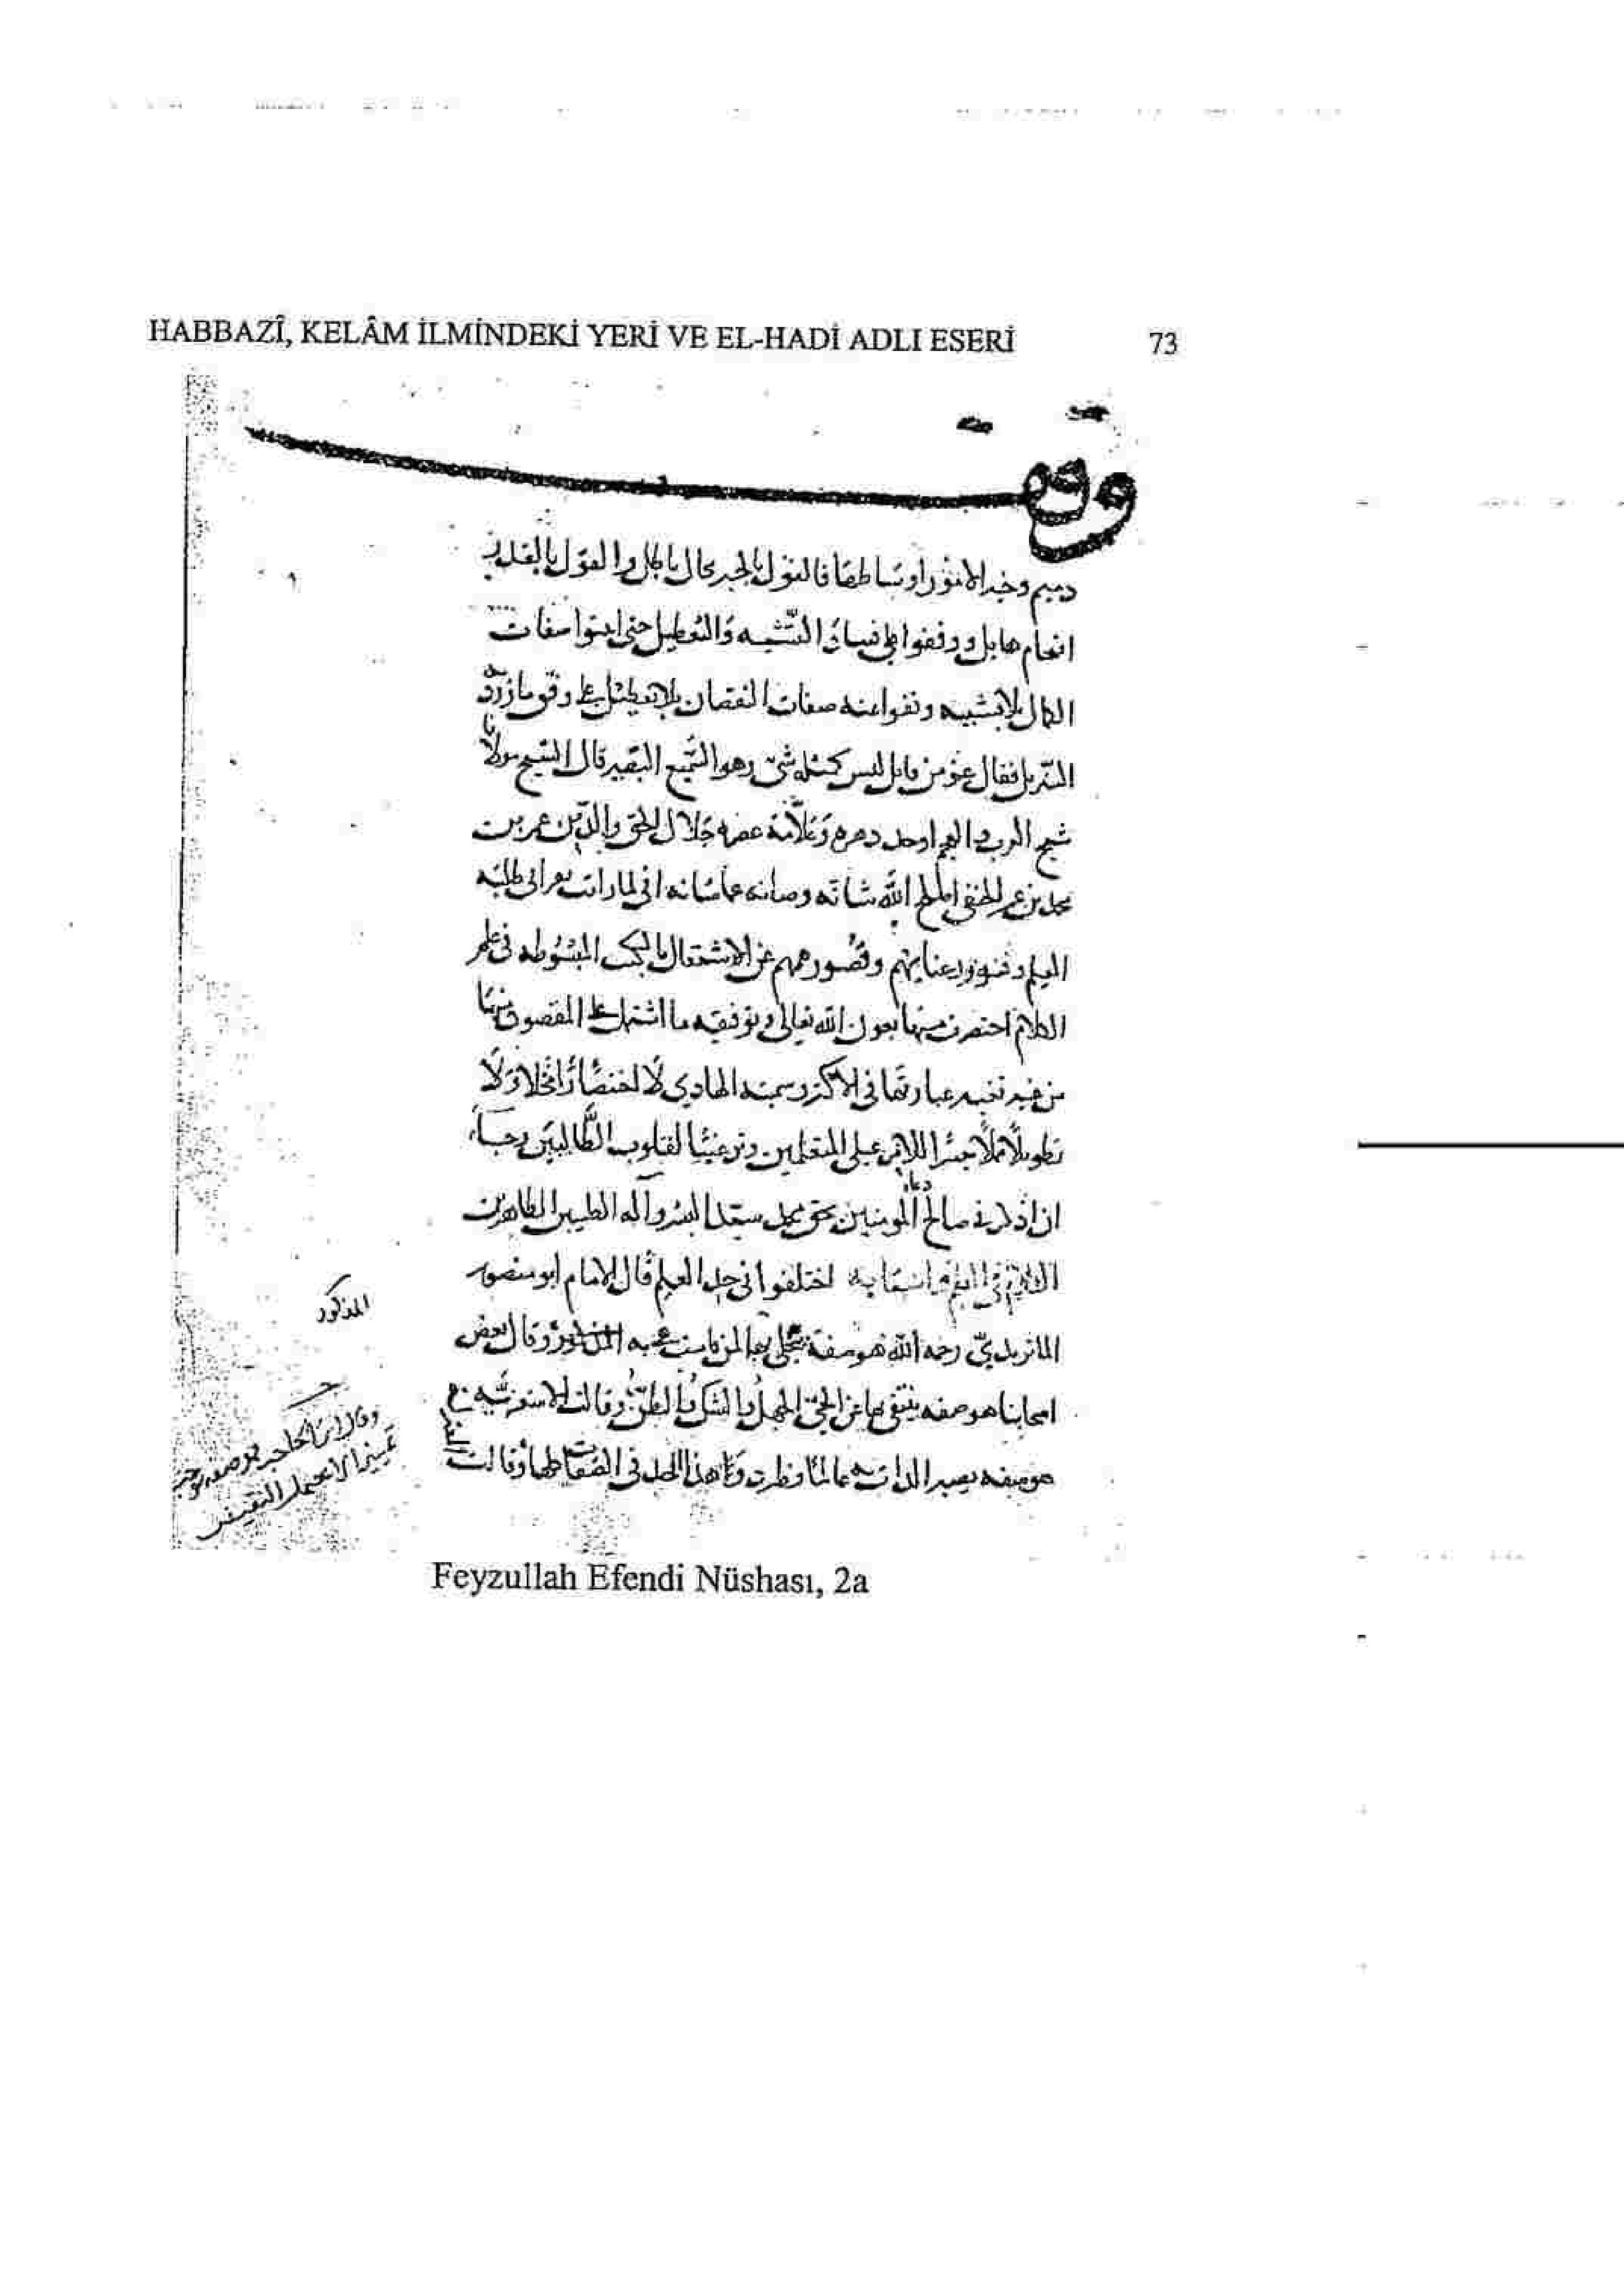 HABBAZÎ, KELÂM İLMİNDEKİ YERİ VE EL-HADİ ADLI ESERİ 73
وقف
دميم وخير الامور اوساطها فالقول بالجبر محال باطل والقول بالقدر
اقتحام هايل ووقفوا على فساد التشبيه والتعطيل حتى اثبتوا صفات
الكمال بلا تشبيه ونفوا عنه صفات النقصان بلا تعطيل على وفق ما
التنزيل فقال عز من قايل ليس كمثله شئ وهو السميع البصير قال الشيخ مولانا
شيخ العرب والعجم اوحد دهره وعلامة عصره جلال الحق والدين عمر بن
محمد بن عمر الحنفي الله شانه وصانه عما شانه اني لما رايت طلبة
العلم وفتور وقصور هممهم عن الاشتغال بالكتب المبسوطة في علم
الكلام اختصرت منها بعون الله تعالى وتوفيقه ما اشتمل على المقصود منها
من غير تغيير عباراتها في الاكثر وسميته الهادي لا اختصارا مخلا ولا
تطويلا مملا للامر على المتعلمين وترغيبا لقلوب الطالبين رجاء
ان اذكر في صالح دعاء المومنين بحق محمد سيد البشر وآله الطيبين الطاهرين
الكلام في العلم واسبابه اختلفوا في حد العلم قال الامام ابو منصور
الماتريدي رحمه الله هو صفة يتجلى بها لمن قامت به المذكور وقال بعض
اصحابنا هو صفة ينتفي بها عن الحي الجهل والشك والظن وقالت الاشعرية
هو صفة يصير الذات به عالما وطردت هذا الحد في الصفات كلها وقالت
المذكور
وقال ابن الحاجب هو صفة توجب
تمييزا لا يحتمل النقيض
Feyzullah Efendi Nüshası, 2a